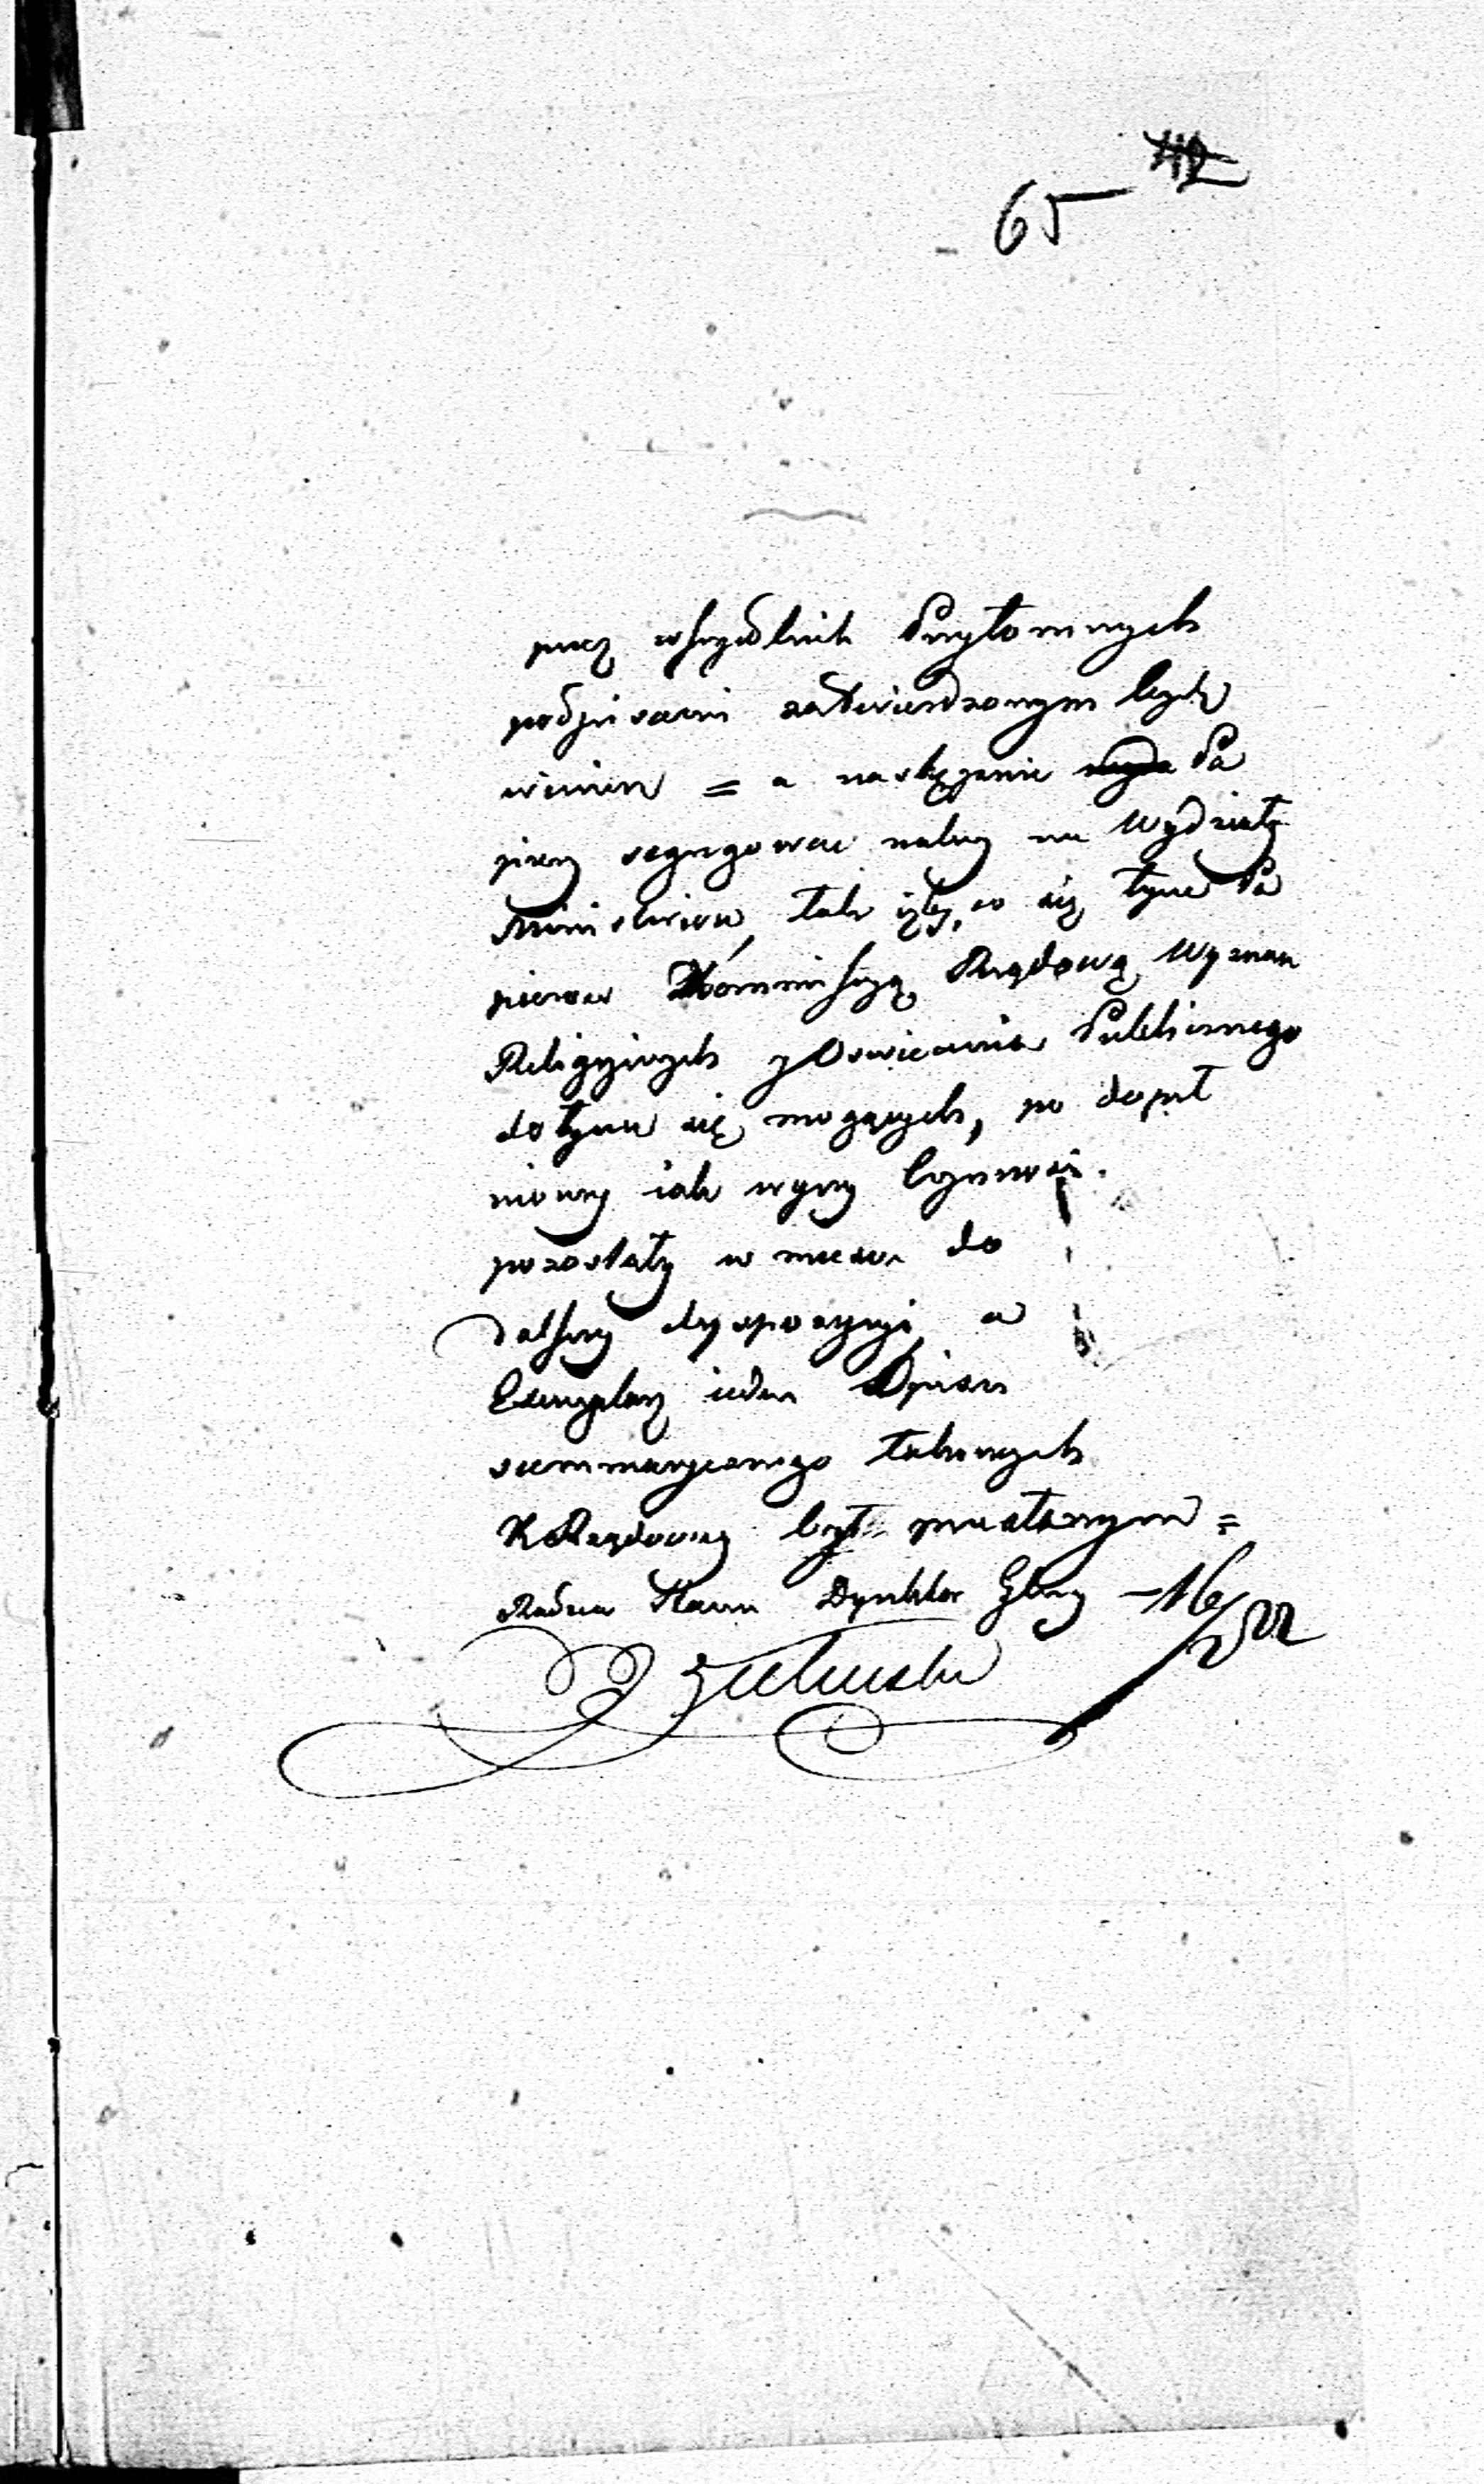 65
przez wszystkich Przytomnych
podpisami zatwierdzonym bydź
winien = a następnie Pa
piery segregować należy na Wydziały
Ministeriów, tak iżby, co się tycze Pa
pierow Kommissyą Rządową Wyznan
Religyinych y Oswiecenia Publicznego
dotyczeć się mogących, po dopeł
nioney iak wyżey Czynności.
pozostały w miescu do
dalszey dyspozycyi, a
Exemplarz ieden Spisu
summarycznego takowych
K Rządowey był przesłanym =
Radca Stanu Dyrektor Głny